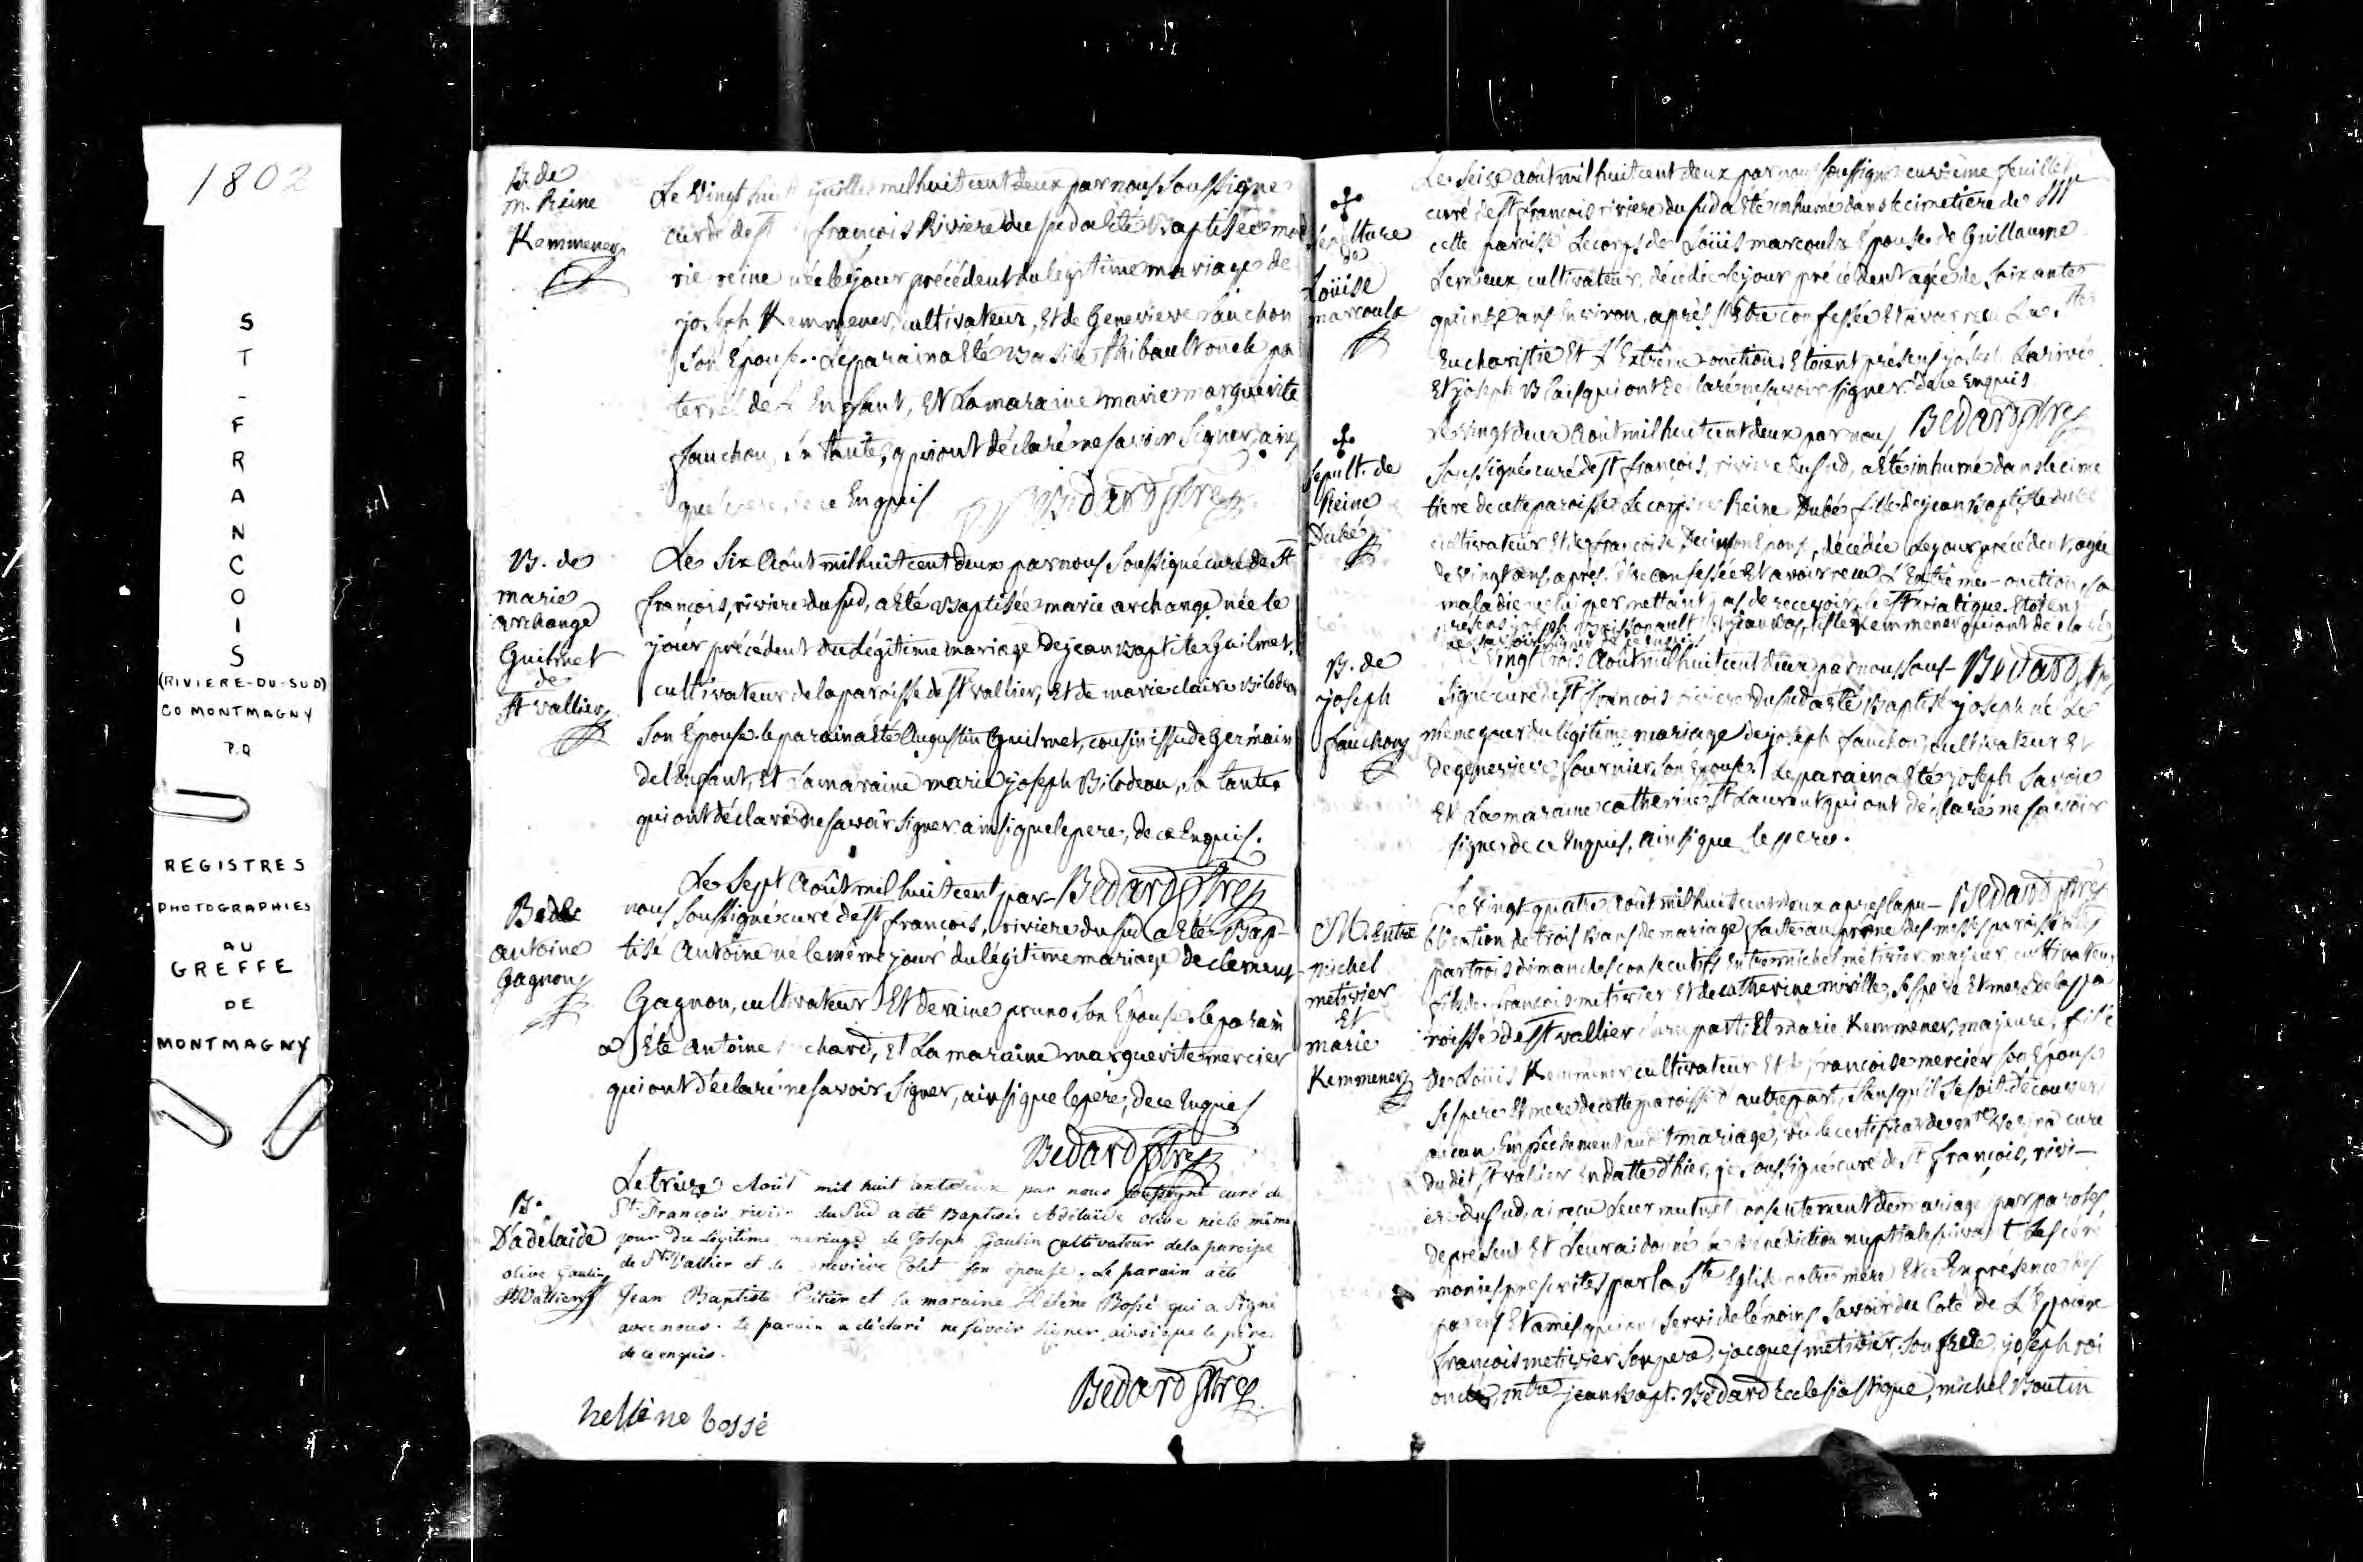 1802
S
T
-
F
R
A
N
C
O
I
S
(RIVIERE-DU-SUD)
CO MONTMAGNY
P.Q
REGISTRES
PHOTOGRAPHIES
AU
GREFFE
DE
MONTMAGNY
B. de
m. Reine
Kemmener
Le vingt huit juillet mil huit cent deux par nous soussigné
curé de St françois Riviere du sud a été Baptisée ma
rie reine née le jour précédent du légitime mariage de
joseph Kemmener, cultivateur, Et de Genevieve fauchon
son Epouse. Le parain a Eté Basile Thibault oncle pa
ternel de l'Enfant, Et La maraine marie marguerite
fauchon, sa tante, qui ont déclaré ne savoir signer, ainsi
que le pere, de ce Enquis
Bedard ptre
B. de
marie
archange
Guilmet
de
St vallier
Le six Août mil huit cent deux par nous soussigné curé de St
françois, riviere du sud, a été Baptisée marie archange née le
jour précédent du légitime mariage de jean Baptiste Guilmet,
cultivateur de la paroisse de St vallier, Et de marie claire Bilodeau
son Epouse. le parain a été Augustin Guilmet, cousin issu de Germain
de l'Enfant, Et la maraine marie joseph Bilodeau, sa tante
qui ont déclaré ne savoir signer ainsi que le pere, de ce Enquis.
Bedard ptre
B de
antoine
Gagnon
Le sept Août mil huit cent par
nous soussigné curé de St françois, riviere du sud a Eté Bap-
tisé Antoine né le même jour du légitime mariage de clement
Gagnon, cultivateur Et de reine pruno son Epouse. le parain
a Eté Antoine chard, Et La maraine marguerite mercier
qui ont déclaré ne savoir signer, ainsi que le pere, de ce Enquis
Bedard ptre
B.
D'adélaide
olive Gaulin
St Vallier
Le treize Août mil huit cent deux par nous soussigné curé de
St François riviere du Sud a été Baptisée Adélaide olive née le même
jour Du Légitime mariage de Joseph Gaulin Cultivateur de la paroisse
de St Vallier et de Genevieve Colet son épouse. Le parain a été
Jean Baptiste et la maraine Hélène Bossé qui a signé
avec nous. Le parain a déclaré ne savoir signer, ainsi que le père
de ce enquis.
Bedard ptre
hellène bossé
Le seize août mil huit cent deux par nous soussigné feuillet
curé de St françois riviere du sud a été inhumé dans le cimetiere de
cette paroisse Le corps de Loüis marcoula Epouse de Guillaume
Lemieux cultivateur, décédée le jour précédent agée de soixante
quinze ans Environ, après s'Etre confessée Et avoir reçu La Ste
Eucharistie Et L'Extrême onction. Etoient présens joseph Larivé
Et joseph Blais qui ont déclaré ne savoir signer de ce Enquis
Bedard ptre
Sépulture
de
Loüise
marcoula
Sepult. de
Reine
Dubé
Le vingt deux Août mil huit cent deux par nous
soussigné curé de St françois, riviere du sud, a Eté inhumé dans le cime
tiere de cette paroisse Le corps de Reine Dubé fille de jean Baptiste Dubé
cultivateur Et de françoise son Epouse, décédée Le jour précédent, agée
de vingt ans, après s'être confessée Et avoir reçu L'Extrême-onction, sa
maladie ne lui permettant pas de recevoir le St viatique. Etoient
présens joseph Et jean Baptiste Kemmener qui ont déclaré
ne savoir signer de ce enquis
Bedard ptre
B. de
joseph
fauchon
Le vingt trois Août mil huit cent deux par nous sous-
signé curé de St françois riviere du sud a été Baptisé joseph né Le
même jour du légitime mariage de joseph fauchon, cultivateur Et
de genevieve fournier, son Epouse. Le parain a Eté joseph Savoie
Et La maraine catherine St Laurent qui ont déclaré ne savoir
signer de ce Enquis, ainsi que le pere.
Bedard ptre
M. Entre
michel
metivier
Et
marie
Kemmener
Le vingt quatre Août mil huit cent deux après la pu-
blication de trois Bans de mariage faite au prône des messes paroissiales
par trois dimanches consecutifs Entre michel metivier, majeur, cultivateur
fils de françois metivier Et de catherine miville, ses pere Et mere de la pa
roisse de St vallier d'une part; Et marie Kemmener, majeure, fille
de Loüis Kemmener, cultivateur Et de françoise mercier son Epouse
ses pere Et mere de cette paroisse d'autre part, sans qu'il se soit découvert
aucun Empêchement au dit mariage, vu le certificat de curé
du dit St vallier En datte d'hier, je soussigné curé de St françois, rivi-
ere du sud, ai reçu Leur mutuel consentement de mariage par paroles
de présent Et Leur ai donné la Bénédiction nuptiale suivant Les céré
monies prescrites par la Ste Eglise notre mere Et ce En présence des
parens Et amis qui ont servi de témoins savoir du Coté de L'Epoux
françois metivier son pere, jacques metivier, son frere, joseph roi
oncle, jean Bapt. Bedard Ecclesiastique, michel Boutin